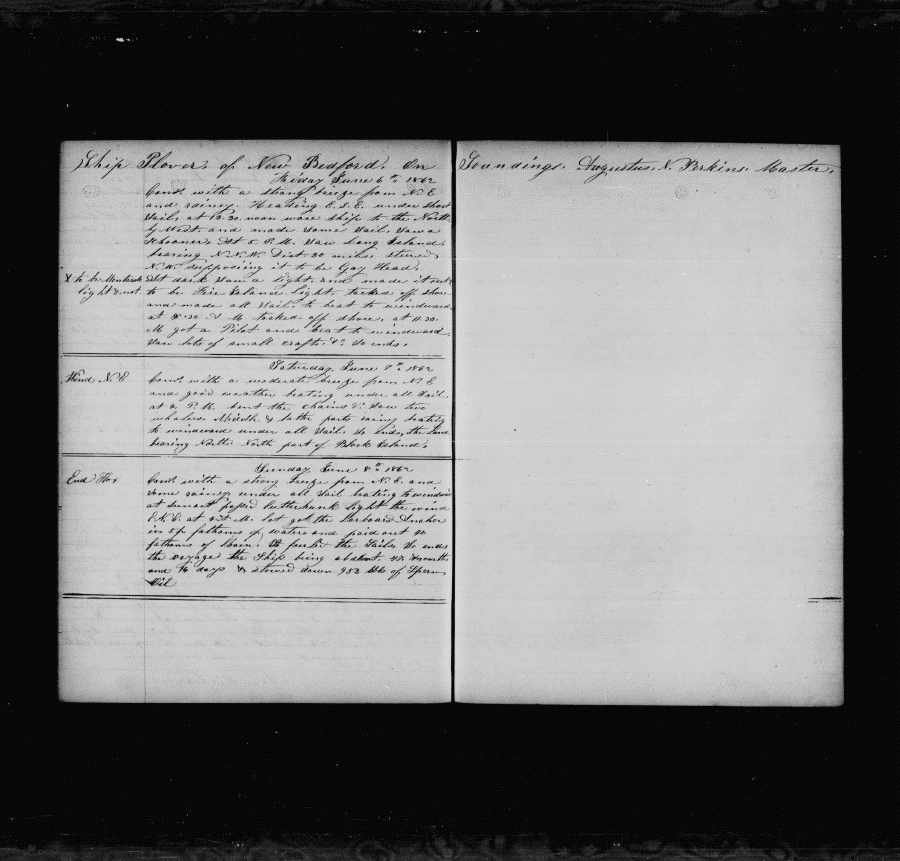 Ship Plover, of New Bedford, On
Soundings. Augustus. N. Perkins. Master.
Friday June 6th 1862
Comes with a strong breeze from N. E
and rainey. Heading E. S. E. under Short
Sail, at 12.30 noon wore ship to the North
by West. and made Some Sail. Saw a
Schooner. At 5. P. M. Saw Long Island
bearing N. N. W. Dist. 20 miles steered
N. W. supposing it to be Gay Head.
X to be Montauk
light & not
At dark Saw a light. and made it out X
to be Fire Island light. tacked off shore
and made all Sail. to beat to windward,
at 8.30 A M tacked off shore, at 11.30
M got a Pilot and beat to windward
Saw lots of small craft. So ends.
Saturday, June 7th 1862
Wind N. E
Comes with a moderate breeze from N. E
and good weather beating under all Sail.
at 2. P. M. bent the chains. Saw two
whalers Middle & latter parts beating
to windward under all Sail. So ends, the land
bearing North part of Block Island.
Sunday, June 8th 1862
End
Comes with a strong breeze from N. E. and
Some rainey under all Sail beating to windward
at sunset passed Cutterhunk light the wind
E. N. E. at M. let go the Larboard Anchor
in fathoms of water and paid out
fathoms of Chain. the Sails So ends
the voyage the Ship being absent months
and days & stowed down 953 bbls of Sperm
Oil